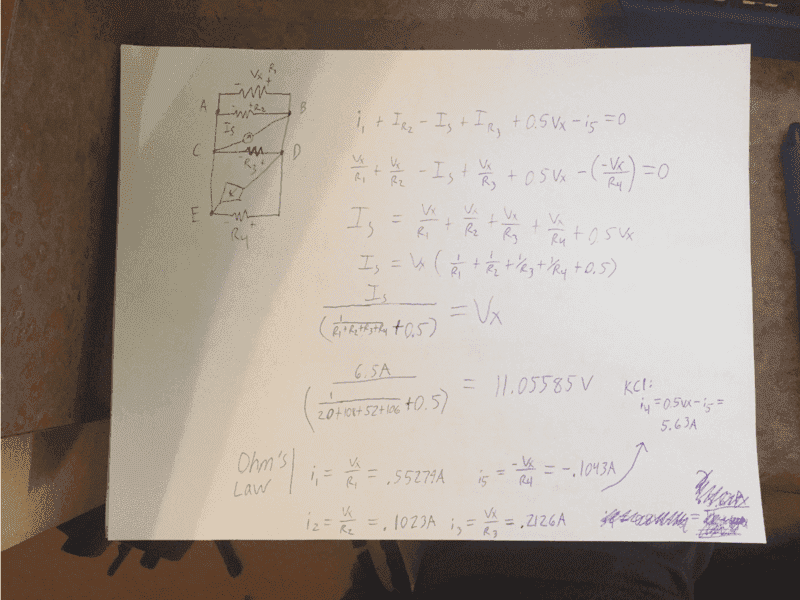 Vx R1
- +
A + R2 B
Is
C - R3 + D
E
R4 +
i1 + IR2 - Is + IR3 + 0.5Vx - i5 = 0
Vx/R1 + Vx/R2 - Is + Vx/R3 + 0.5Vx - (-Vx/R4) = 0
Is = Vx/R1 + Vx/R2 + Vx/R3 + Vx/R4 + 0.5Vx
Is = Vx ( 1/R1 + 1/R2 + 1/R3 + 1/R4 + 0.5)
Is / (1/R1+R2+R3+R4 + 0.5) = Vx
6.5A / (1/20+108+52+106 + 0.5) = 11.05585 V
KCl:
i4 = 0.5Vx - i5 =
5.63A
Ohm's Law | i1 = Vx/R1 = .55279A i5 = -Vx/R4 = -.1043A
i2 = Vx/R2 = .1023A i3 = Vx/R3 = .2126A